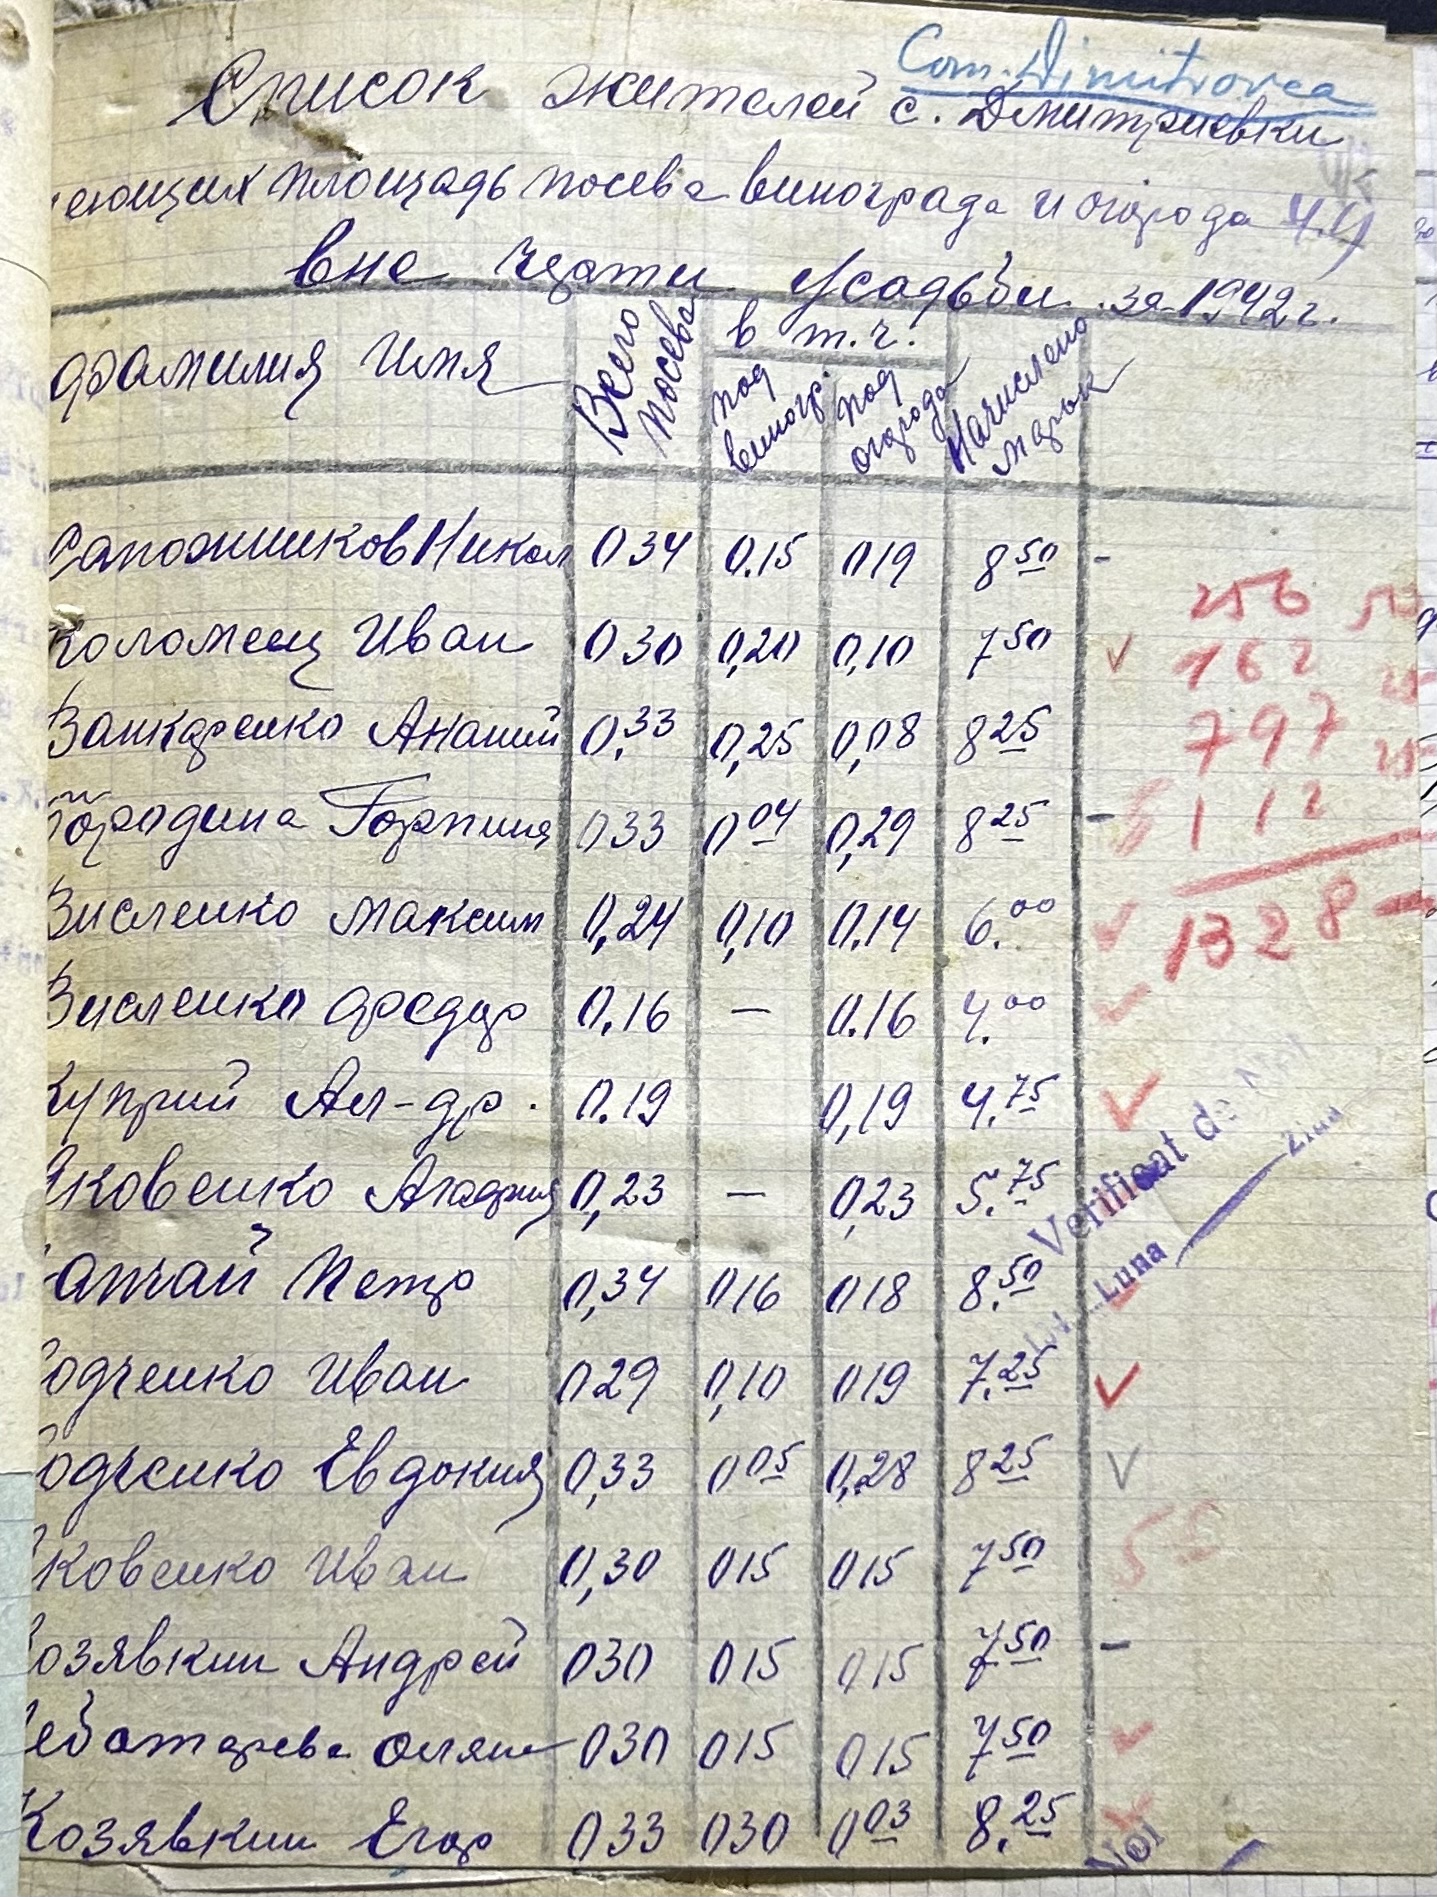 Com. Dimitrovca
Список жителей с. Дмитриевки
еющих площадь посева винограда и огорода
вне черты усадьбы за 1942 г.
Фамилия Имя
Всего посева
в т.ч.
под виногр.
под огорода
Начислено марок
Сапожников Никол 034 0.15 019 8 50 -
Коломеец Иван 030 0,20 0,10 7 50 ✓
Ананий 0,33 0,25 0,08 8 25
Бородина Горпина 033 0 04 0,29 8 25 -
Висленко Максим 0,24 0,10 0.14 6.00 ✓
Висленко Федор 0.16 — 0.16 4.00 ✓
Куприй Ал-др. 0.19 0,19 4.75 ✓
Яковенко Агафия 0,23 — 0,23 5.75
Петр 0,34 016 018 8.50
одченко Иван 029 0,10 019 7.25 ✓
одченко Евдокия 0,33 0 05 0,28 8 25 ✓
Яковенко Иван 0,30 015 015 7 50
озявкин Андрей 030 015 015 7 50 -
ебатарева Оляна 030 015 015 7 50 ✓
Козявкин Егор 033 030 0 03 8.25
256
162 25
797 25
112
1328 -
Verificat de
Luna Ziua